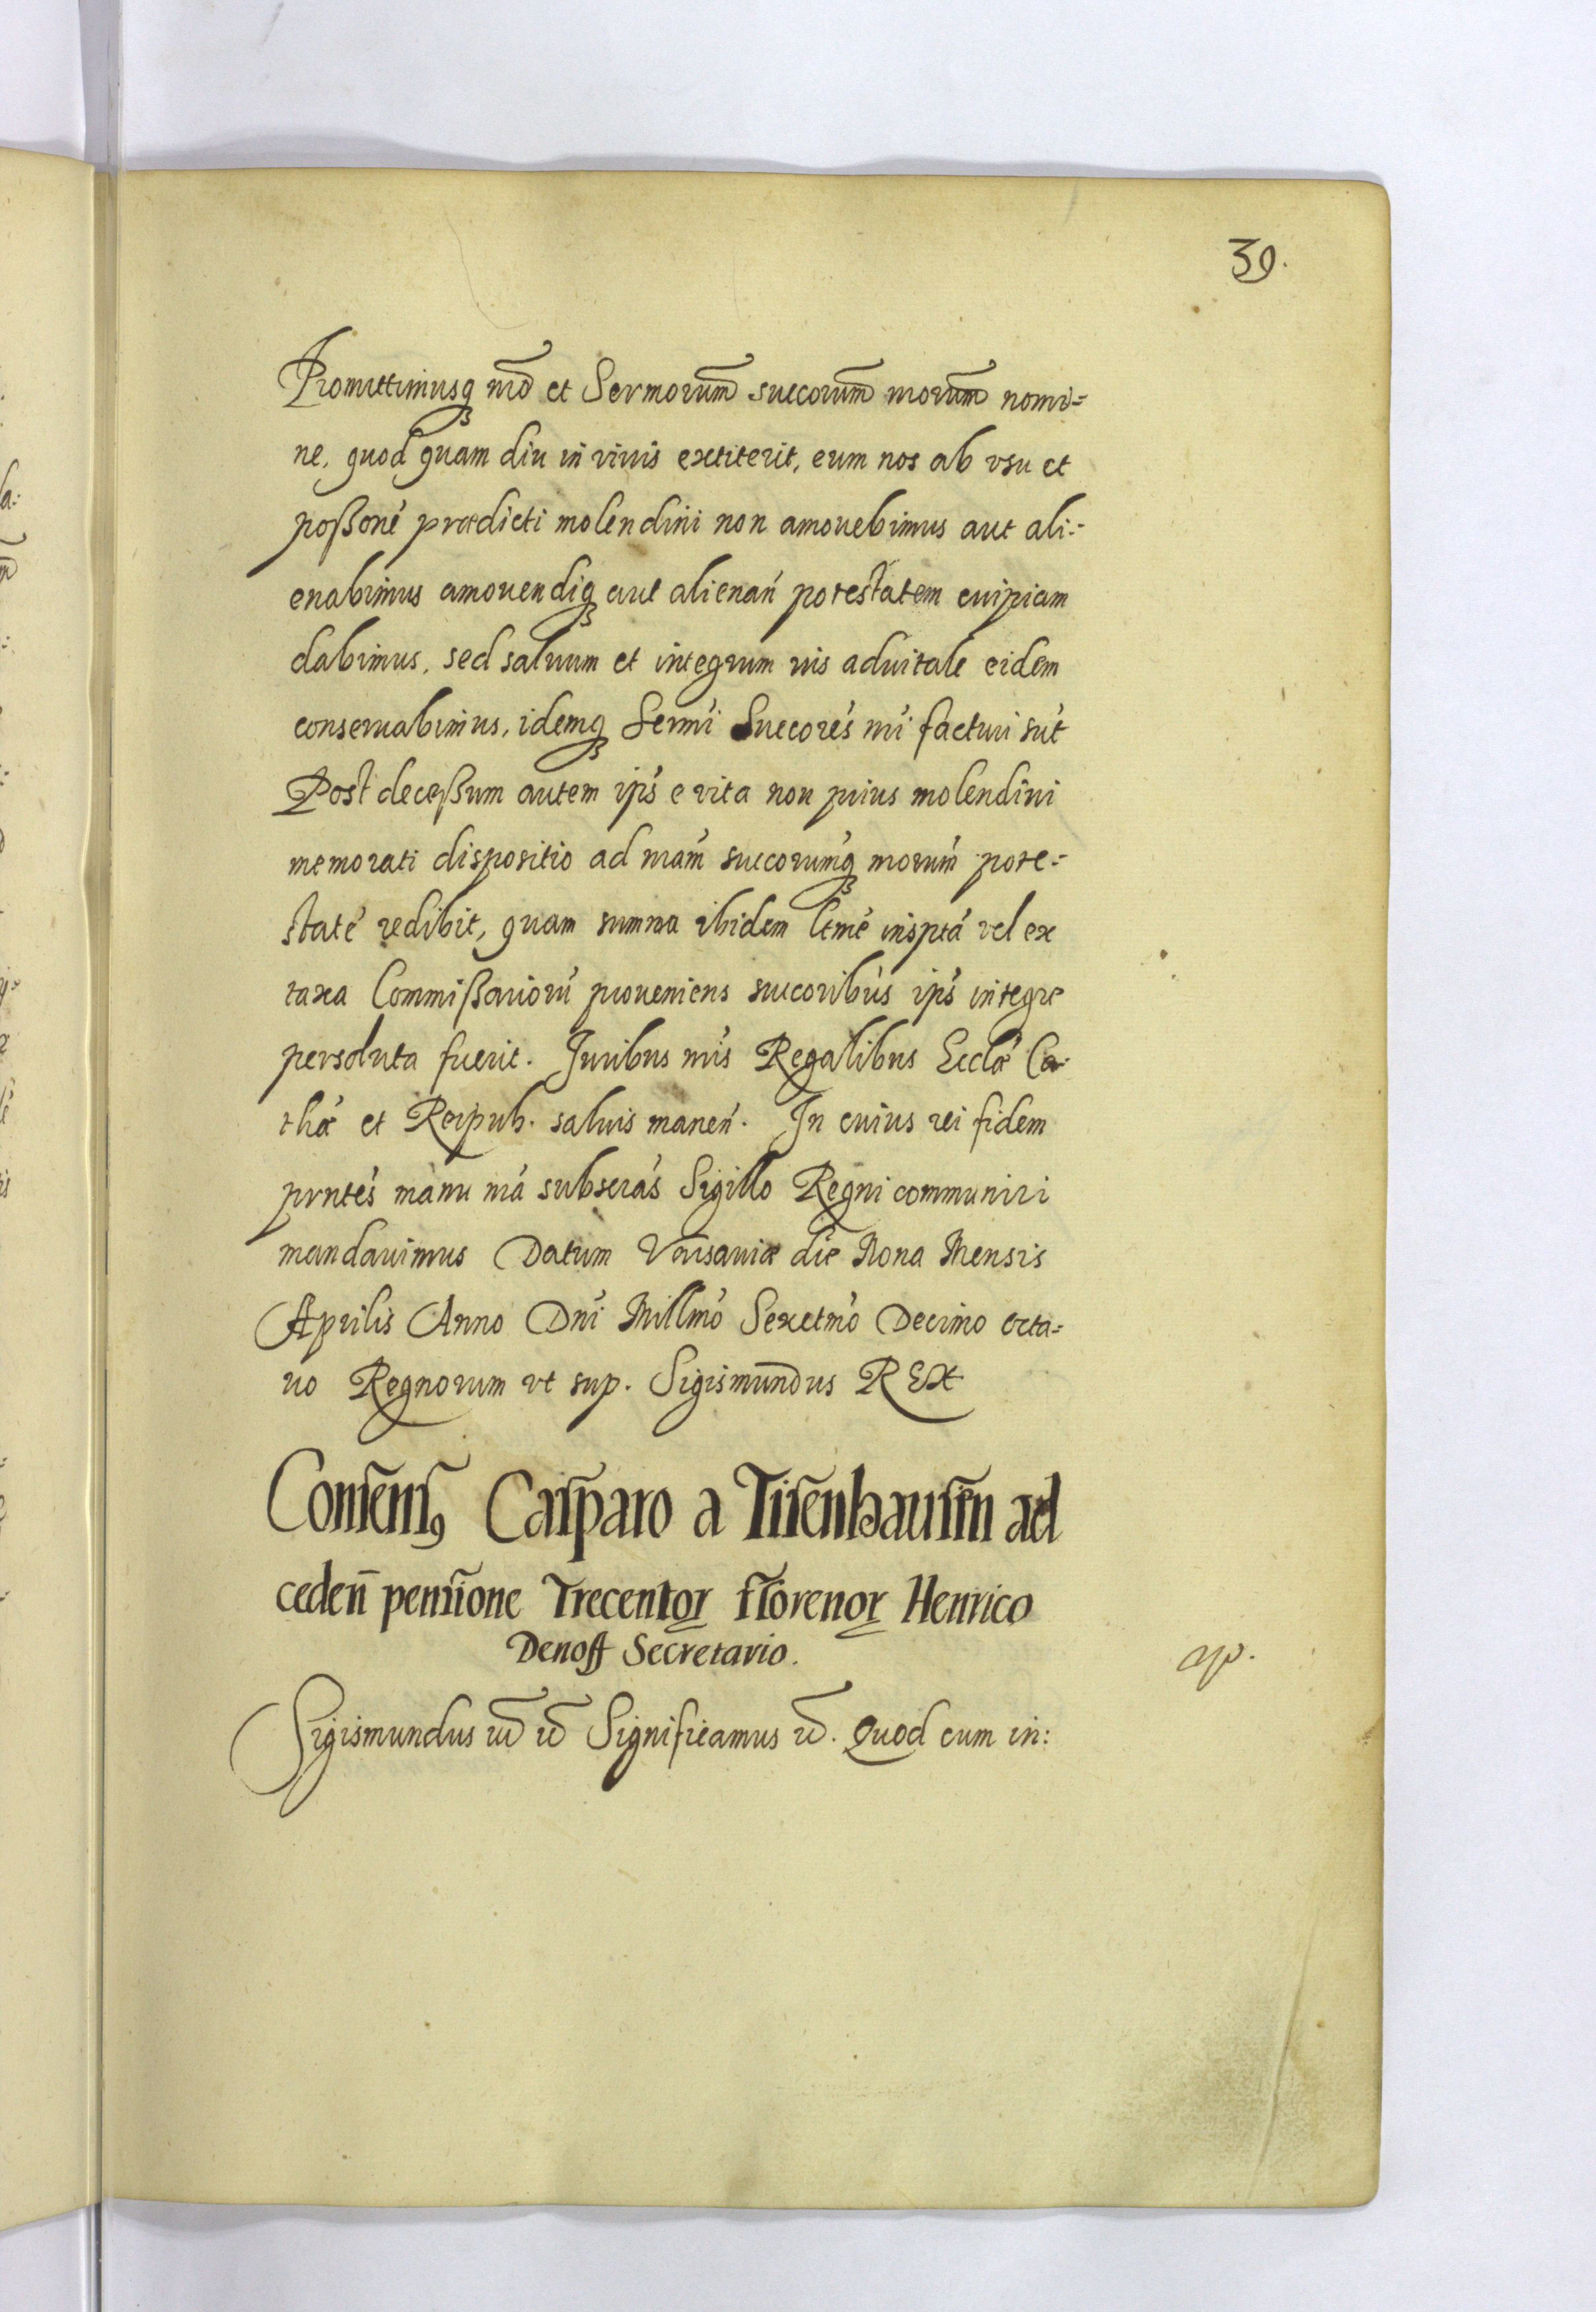 39.
Promittimusq nrõ et Sermorum̃ succorum̃ nrorum̃ nomi=
ne, quod quam diu in viuis extiterit, eum nos ab vsu et
poßoné prædicti molendini non amouebimus aut ali=
enabimus amouendiq aut alienań potestatem cuipiam
dabimus, sed saluum et integrum ius aduitale eidem
conseruabimus, idemq Sermi Succorés nri facturi sut
Post deceßum autem ips e vita non prius molendini
memorati dispositio ad nram succorumq nrorum pote=
statē redibit, quam summa ibidem ltmē inspta vel ex
taxa Commißariorū proueniens succoribus ips integre
persoluta fuerit. Juribus nris Regalibus Ecclæ Ca-
thæ et Reipub. saluis maneń. In cuius rei fidem
prntes manu nra subscras Sigillo Regni communiri
mandauimus Datum Varsauiæ die Nona Mensis
Aprilis Anno Dni Millmo Sexctmo Decimo octa=
uo Regnorum vt sup. Sigismundus REX
Consens9 Casparo a Tisenhausen ad
cedeñ pensione Trecentor florenor Henrico
Denoff Secretario.
ap.
Sigismundus etc̃ etc̃ Significamus etc̃. Quod cum in: